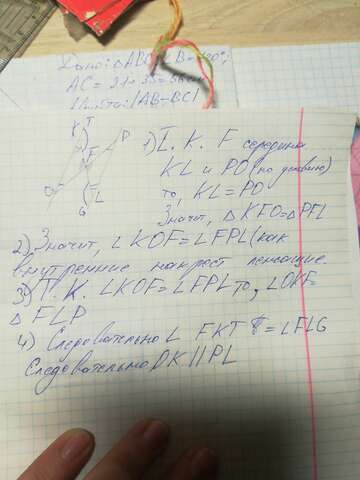 Дано: ΔABC, B=120°,
AC = 21+35=56см
|AB-BC|
K T
P
F
O
L
G
1) Т. К. F середина
KL и PO (по условию)
то, KL=PO
Значит, ΔKFO=ΔPFL
2) Значит, ∠KOF=∠FPL (как
внутренние накрест лежащие
3) Т. К. ∠KOF=∠FPL то, ∠OKF=
Δ FLP
4) Следовательно ∠ FKT = ∠FLG
Следовательно OK || PL